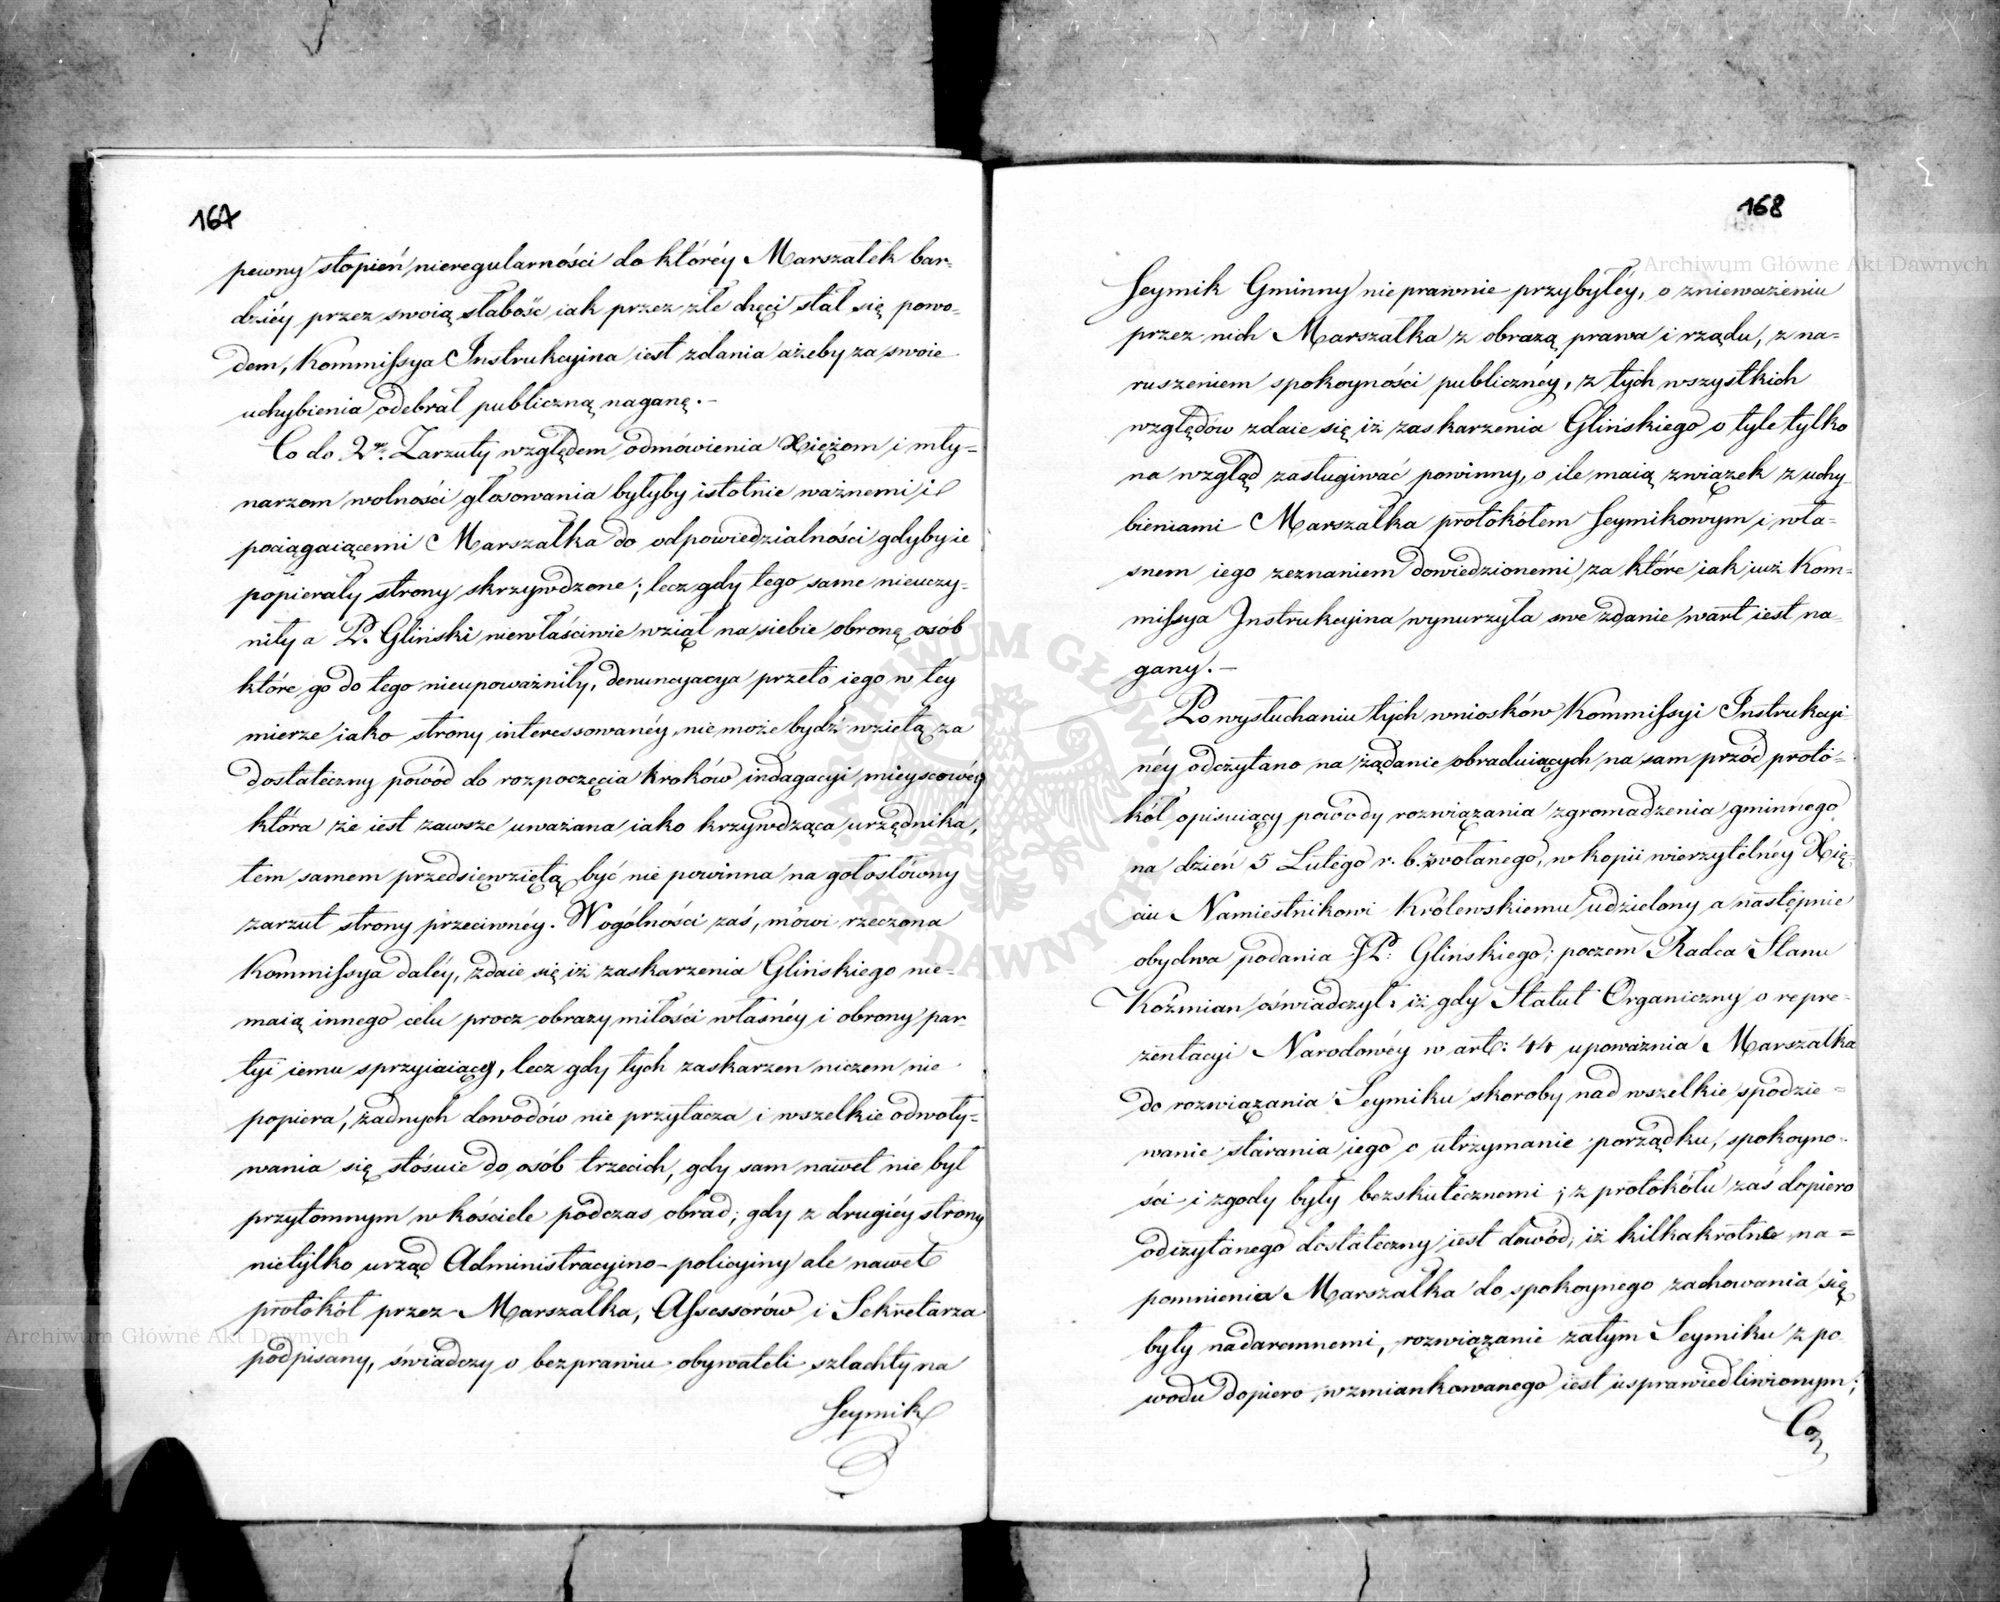 167
pewny stopień nieregularności do któréy Marszałek bar-
dziéy przez swoią słabość iak przez złe chęci stał się powo-
dem, Kommissya Instrukcyina iest zdania ażeby za swoie
uchybienia odebrał publiczną naganę. -
Co do 2go. Zarzuty względem odmówienia Xiężom i mły-
narzom wolności głosowania byłyby istotnie ważnemi i
pociągaiącemi Marszałka do odpowiedzialności gdyby ie
popierały strony skrzywdzone; lecz gdy tego same nieuczy-
niły a P. Gliński niewłaściwie wziął na siebie obronę osób
które go do tego nieupoważniły, denuncyacya przeto iego w téy
mierze iako strony interessowanéy, nie może bydź wziętą za
dostateczny powód do rozpoczęcia kroków indagacyi mieyscowéy
która że iest zawsze uważana iako krzywdząca urzędnika,
tem samem przedsięwziętą być nie powinna na gołosłowny
zarzut strony przeciwnéy. W ogólności zaś, mówi rzeczona
Kommissya daléy, zdaie się iż zaskarzenia Glińskiego nie-
maią innego celu procz obrazy miłości własnéy i obrony par-
tyi iemu sprzyiaiącéy, lecz gdy tych zaskarzen niczem nie
popiera, żadnych dowodów nie przytacza i wszelkie odwoły-
wania się stósuie do osób trzecich, gdy sam nawet nie był
przytomnym w kościele podczas obrad; gdy z drugiéy strony
nietylko urząd Administracyino-policyiny ale nawet
protokół przez Marszałka, Assessorów i Sekretarza
podpisany, świadczy o bezprawiu obywateli szlachty na
Seymik
168
Seymik Gminny nieprawnie przybyłéy, o znieważeniu
przez nich Marszałka z obrazą prawa i rządu, z na-
ruszeniem spokoyności publicznéy, z tych wszystkich
względów zdaie się iż zaskarzenia Glińskiego o tyle tylko
na wzgląd zasługiwać powinny, o ile maią związek z uchy
bieniami Marszałka protokółem Seymikowym i wła-
snem iego zeznaniem dowiedzionemi, za które iak iuż Kom-
missya Instrukcyina wynurzyła swe zdanie wart iest na-
gany. -
Po wysłuchaniu tych wniosków Kommissyi Instrukcyi-
néy odczytano na żądanie obraduiących na sam przód proto-
kół opisuiący powody rozwiązania zgromadzenia gminnego
na dzień 5 Lutego r. b. zwołanego, w kopii wierzytelnéy Xię-
ciu Namiestnikowi Królewskiemu udzielony a następnie
obydwa podania JP. Glińskiego; poczem Radca Stanu
Koźmian oświadczył: iż gdy Statut Organiczny o repre-
zentacyi Narodowéy w art: 44 upoważnia Marszałka
do rozwiązania Seymiku skoroby nad wszelkie spodzie-
wanie starania iego o utrzymanie porządku, spokoyno-
ści i zgody były bezskutecznemi; z protokółu zaś dopiero
odczytanego dostateczny iest dowód, iż kilkakrotne na-
pomnienia Marszałka do spokoynego zachowania się
były nadaremnemi, rozwiązanie zatym Seymiku z po
wodu dopiero wzmiankowanego iest usprawiedliwionym;
Co
Archiwum Główne Akt Dawnych
Archiwum Główne Akt Dawnych
ARCHIWUM GŁÓWNE AKT DAWNYCH